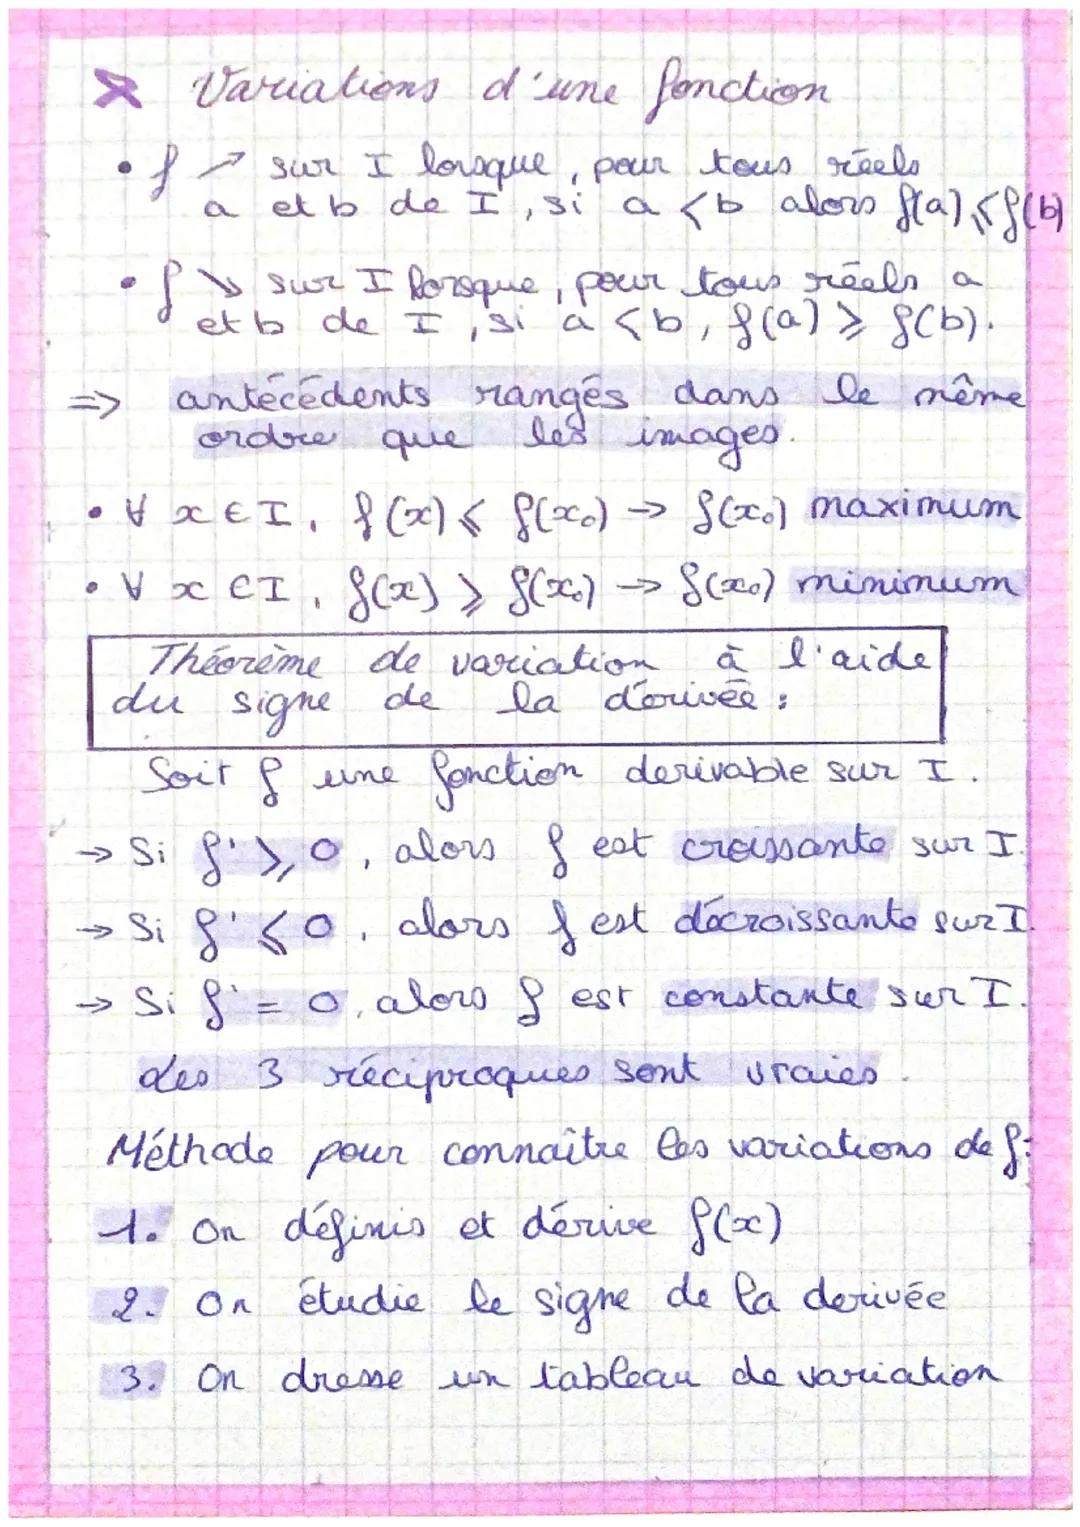 Variations d'une fonction
• f ↗ sur I lorsque, pour tous réels
a et b de I, si a < b alors f(a) ⩽ f(b)
• f ↘ sur I lorsque, pour tous réels a
et b de I, si a < b, f(a) ⩾ f(b).
=> antécédents rangés dans le même
ordre que les images.
• ∀ x ∈ I, f(x) ⩽ f(x₀) → f(x₀) maximum
• ∀ x ∈ I, f(x) ⩾ f(x₀) → f(x₀) minimum
Théorème de variation à l'aide
du signe de la dérivée :
Soit f une fonction derivable sur I.
→ Si f' ⩾ 0, alors f est croissante sur I.
→ Si f' ⩽ 0, alors f est décroissante sur I.
→ Si f' = 0, alors f est constante sur I.
Les 3 réciproques sont vraies.
Méthode pour connaître les variations de f:
1. On définis et dérive f(x)
2. On étudie le signe de la derivée
3. On dresse un tableau de variation